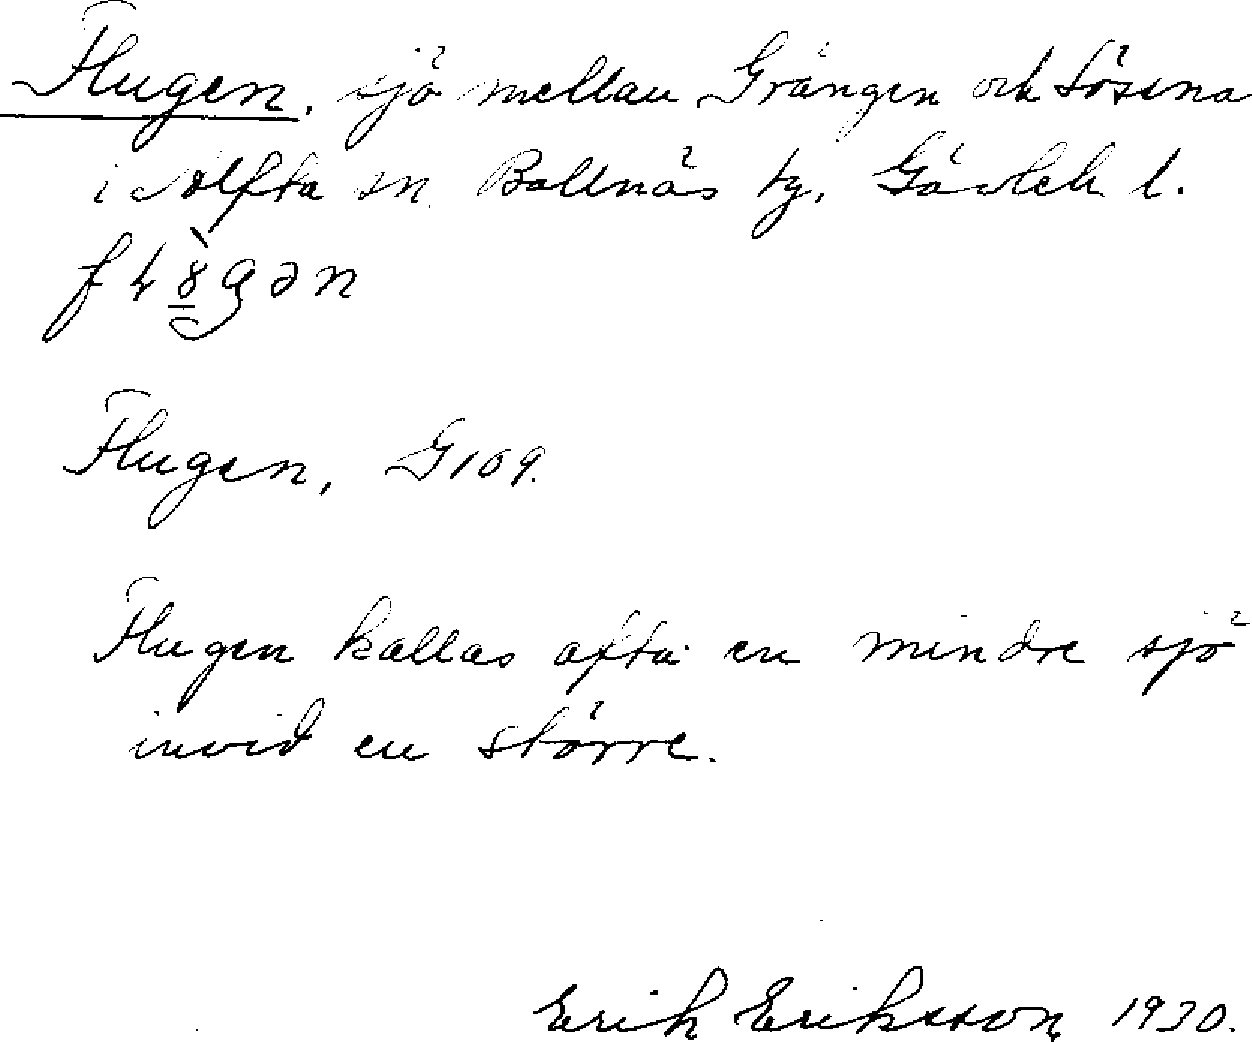 Flugen. sjö mellan Grängen och Lössna
i Alfta sn Bollnäs tg, Gävleb l.
Flugen, G 109.
Flugen kallas ofta en mindre sjö
invid en större.
Erik Eriksson, 1930.